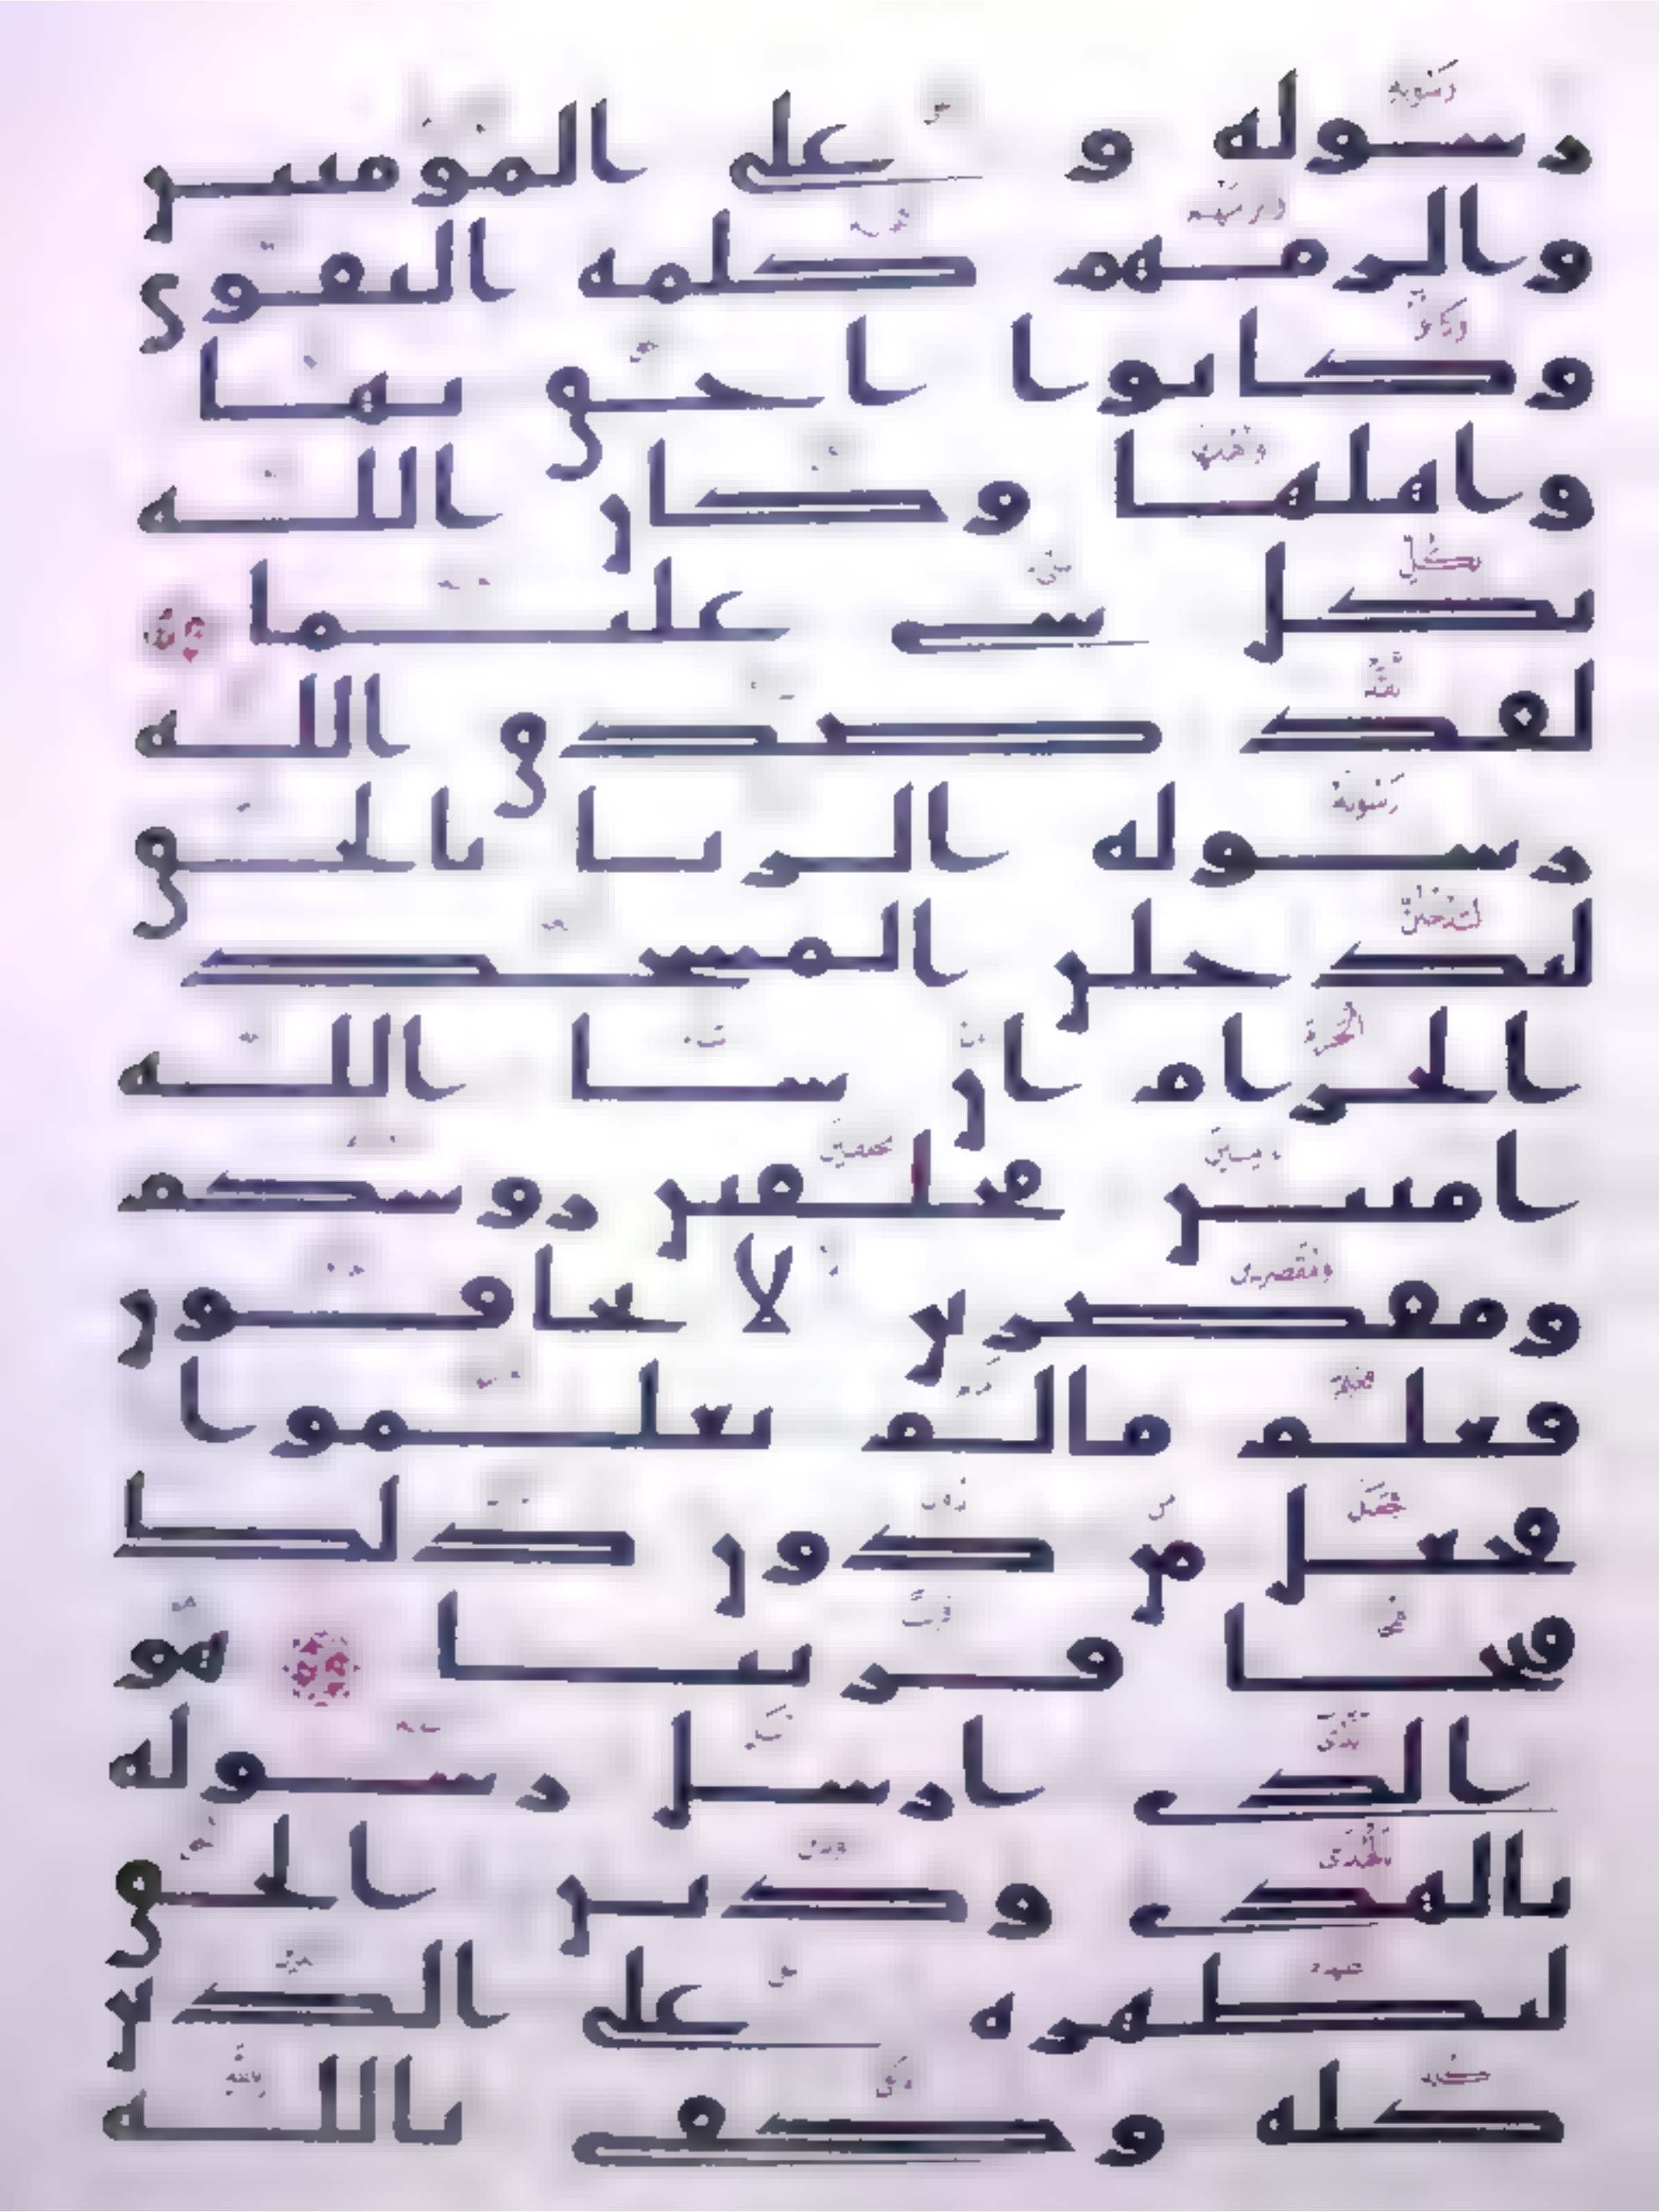 رسوله و على المومنين
والزمهم كلمه التقوى
وكانوا احق بها
واهلها وكان الله
بكل شى عليما
لقد صدق الله
رسوله الريا بالحق
لتدخلن المسجد
الحرام ان شا الله
امنين محلقين روسكم
ومقصرين لا تخافون
فعلم مالم تعلموا
فجعل من دون ذلك
فتحا قريبا هو
الذى ارسل رسوله
بالهدى ودين الحق
ليظهره على الدين
كله وكفى بالله